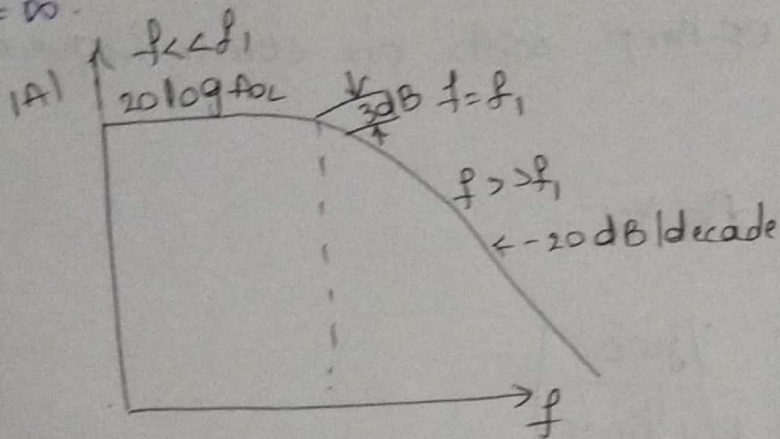 = ∞.
f<<f₁
|A|
20 log AOL
3dB f=f₁
f>>f₁
<-20 dB/decade
f